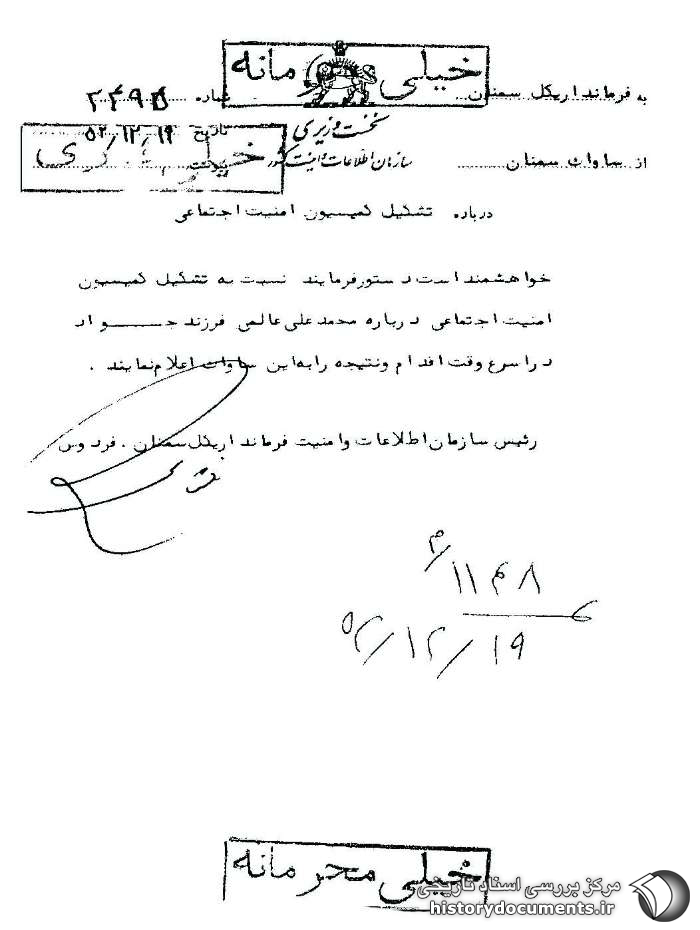 خیلی محرمانه
به فرمانداریکل سمنان
شماره
نخست وزیری
تاریخ ۵۲/۱۲/۱۹
از ساواک سمنان
سازمان اطلاعات و امنیت کشور
پیوست
خیلی فوری
درباره تشکیل کمیسیون امنیت اجتماعی
خواهشمند است دستور فرمایند نسبت به تشکیل کمیسیون
امنیت اجتماعی درباره محمد علی عالمی فرزند جواد
در اسرع وقت اقدام ونتیجه را به این ساواک اعلام نمایند .
رئیس سازمان اطلاعات و امنیت فرمانداریکل سمنان . فردوس
م/۱۱۴۸
۵۲/۱۲/۱۹
خیلی محرمانه
مرکز بررسی اسناد تاریخی
historydocuments.ir